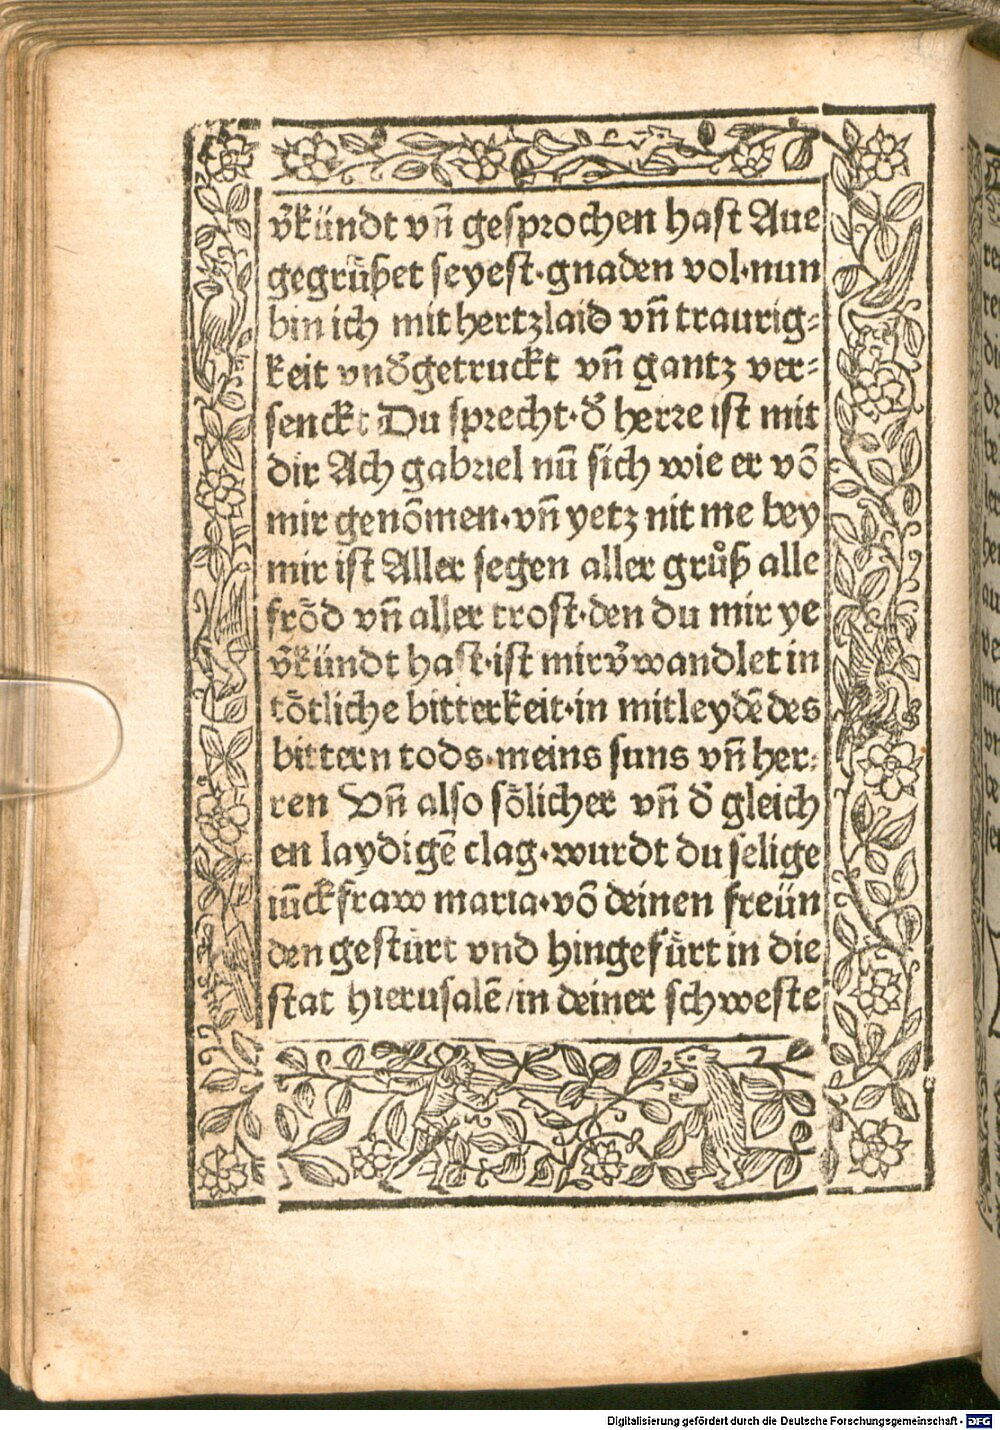 v̄kündt vn̄ gesprochen hast Aue
gegrüßet seyest·gnaden vol·nun
bin ich mit hertzlaid vn̄ traurig⸗
keit vnd̄getruckt vn̄ gantz ver⸗
senckt Du sprecht·d̄ herre ist mit
dir Ach gabriel nū sich wie er vō
mir genōmen·vn̄ yetz nit me bey
mir ist Aller segen aller grůß alle
frŏd vn̄ aller trost·den du mir ye
v̄kündt hast·ist mir v̄wandlet in
tŏtliche bitterkeit·in mitleydē des
bittern tods·meins suns vn̄ her⸗
ren Vn̄ also sŏlicher vn̄ d̄ gleich
en laydigē clag·wurdt du selige
iūckfraw maria·vō deinen freün
den gestürt vnd hingefürt in die
stat hierusalē/in deiner schweste
Digitalisierung gefördert durch die Deutsche Forschungsgemeinschaft - DFG